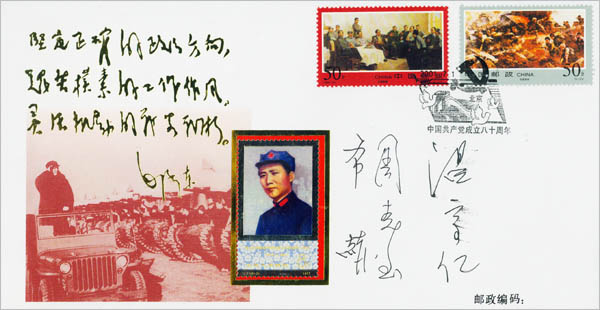 坚定正确的政治方向,
艰苦朴素的工作作风,
灵活机动的战略战术。
毛泽东
50分
中国邮政 CHINA
中国邮政 CHINA
50分
北京
中国共产党成立八十周年
温宗仁
邮政编码: